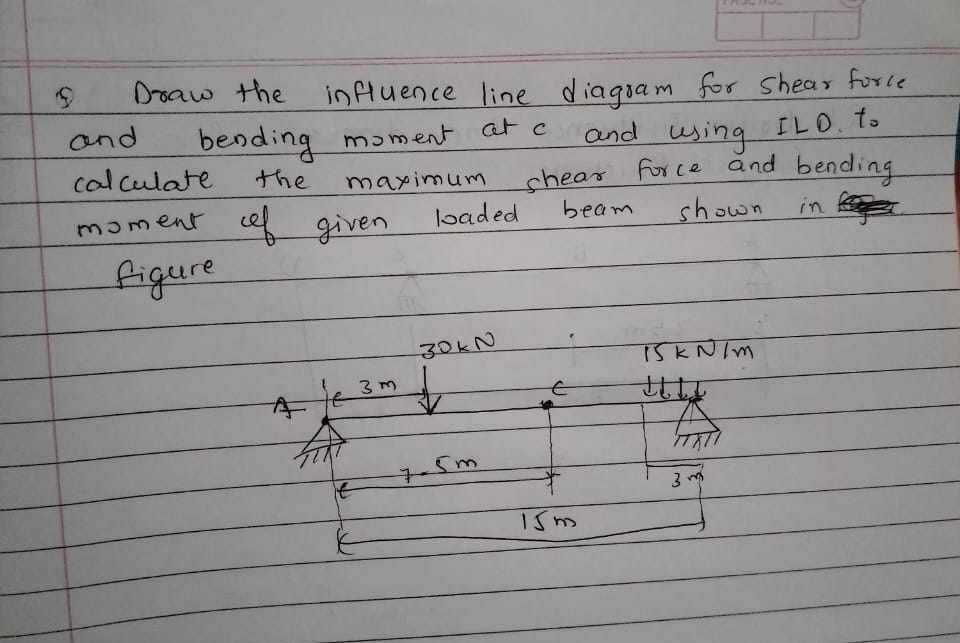 Q Draw the influence line diagram for shear force
and bending moment at c and using ILD. to
calculate the maximum shear force and bending
moment of given loaded beam shown in
figure
30kN 15kN/m
A 3m C
7.5m
3m
15m